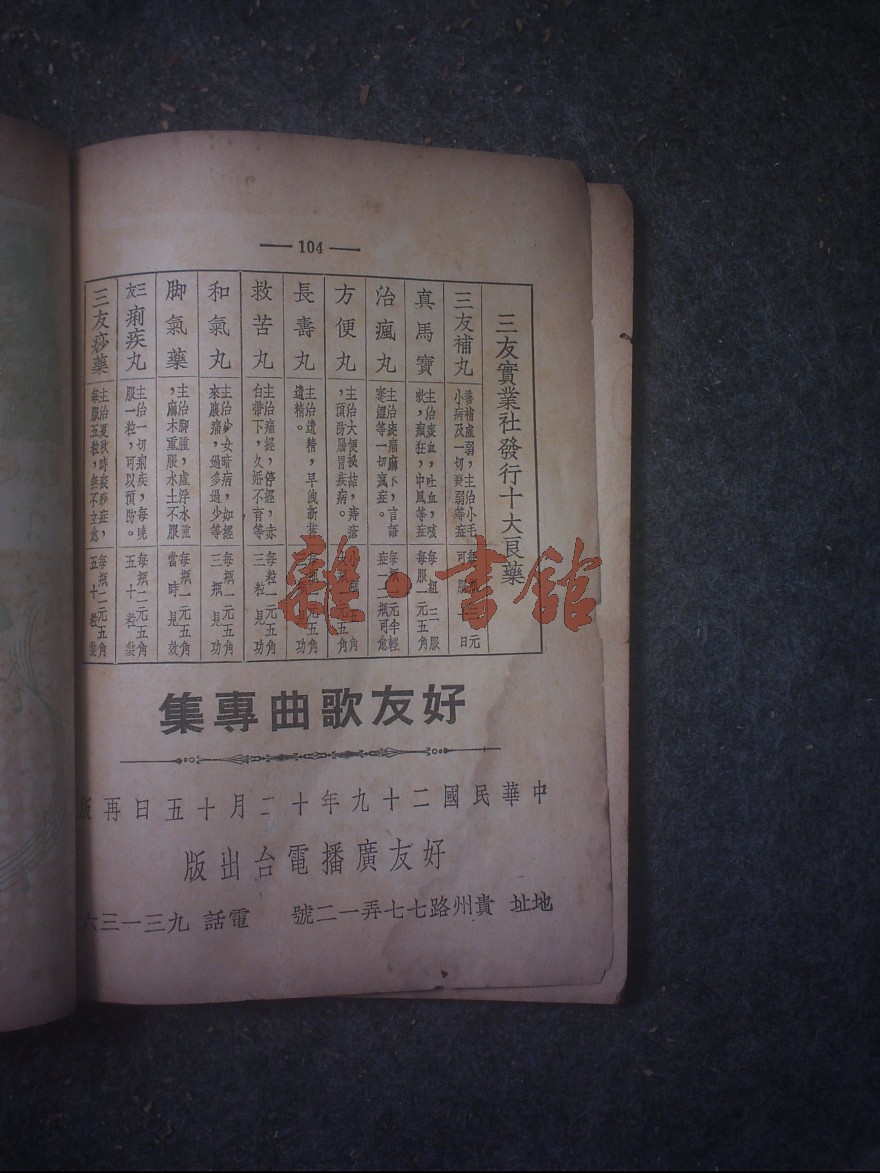 104
三友實業社發行十大良藥
三友補丸
善補虛弱,主治小毛
小病及一切衰弱等症
真馬寶
主治痰血,吐血,咳
嗽,癲狂,中風等症
每組三服
每服一元五角
治瘋丸
主治痠痛麻木,言語
蹇澀等一切瘋症。
症一二瓶可愈
方便丸
主治大便祕結,痔瘡
,預防腸胃疾病。
長壽丸
主治遺精,早洩新舊
遺精。
救苦丸
主治痛經,停經,赤
白帶下,久婚不育等
每粒一元五角
三粒見功
和氣丸
主治少女暗病,如經
來腹痛,過多過少等
每瓶二元五角
三瓶見功
脚氣藥
主治脚腫,虛浮水腫
,麻木重服水土不服
每瓶一元五角
當時見效
三友痢疾丸
主治一切痢疾,每晚
服一粒,可以預防。
每瓶二元五角
五十粒裝
三友痧藥
主治夏秋時疫痧症,
每服五粒,無不立愈
每瓶二元五角
五十粒裝
好友歌曲專集
中華民國二十九年十二月十五日再版
好友廣播電台出版
地址 貴州路七七弄一二號 電話 九三一三六
雜·書館